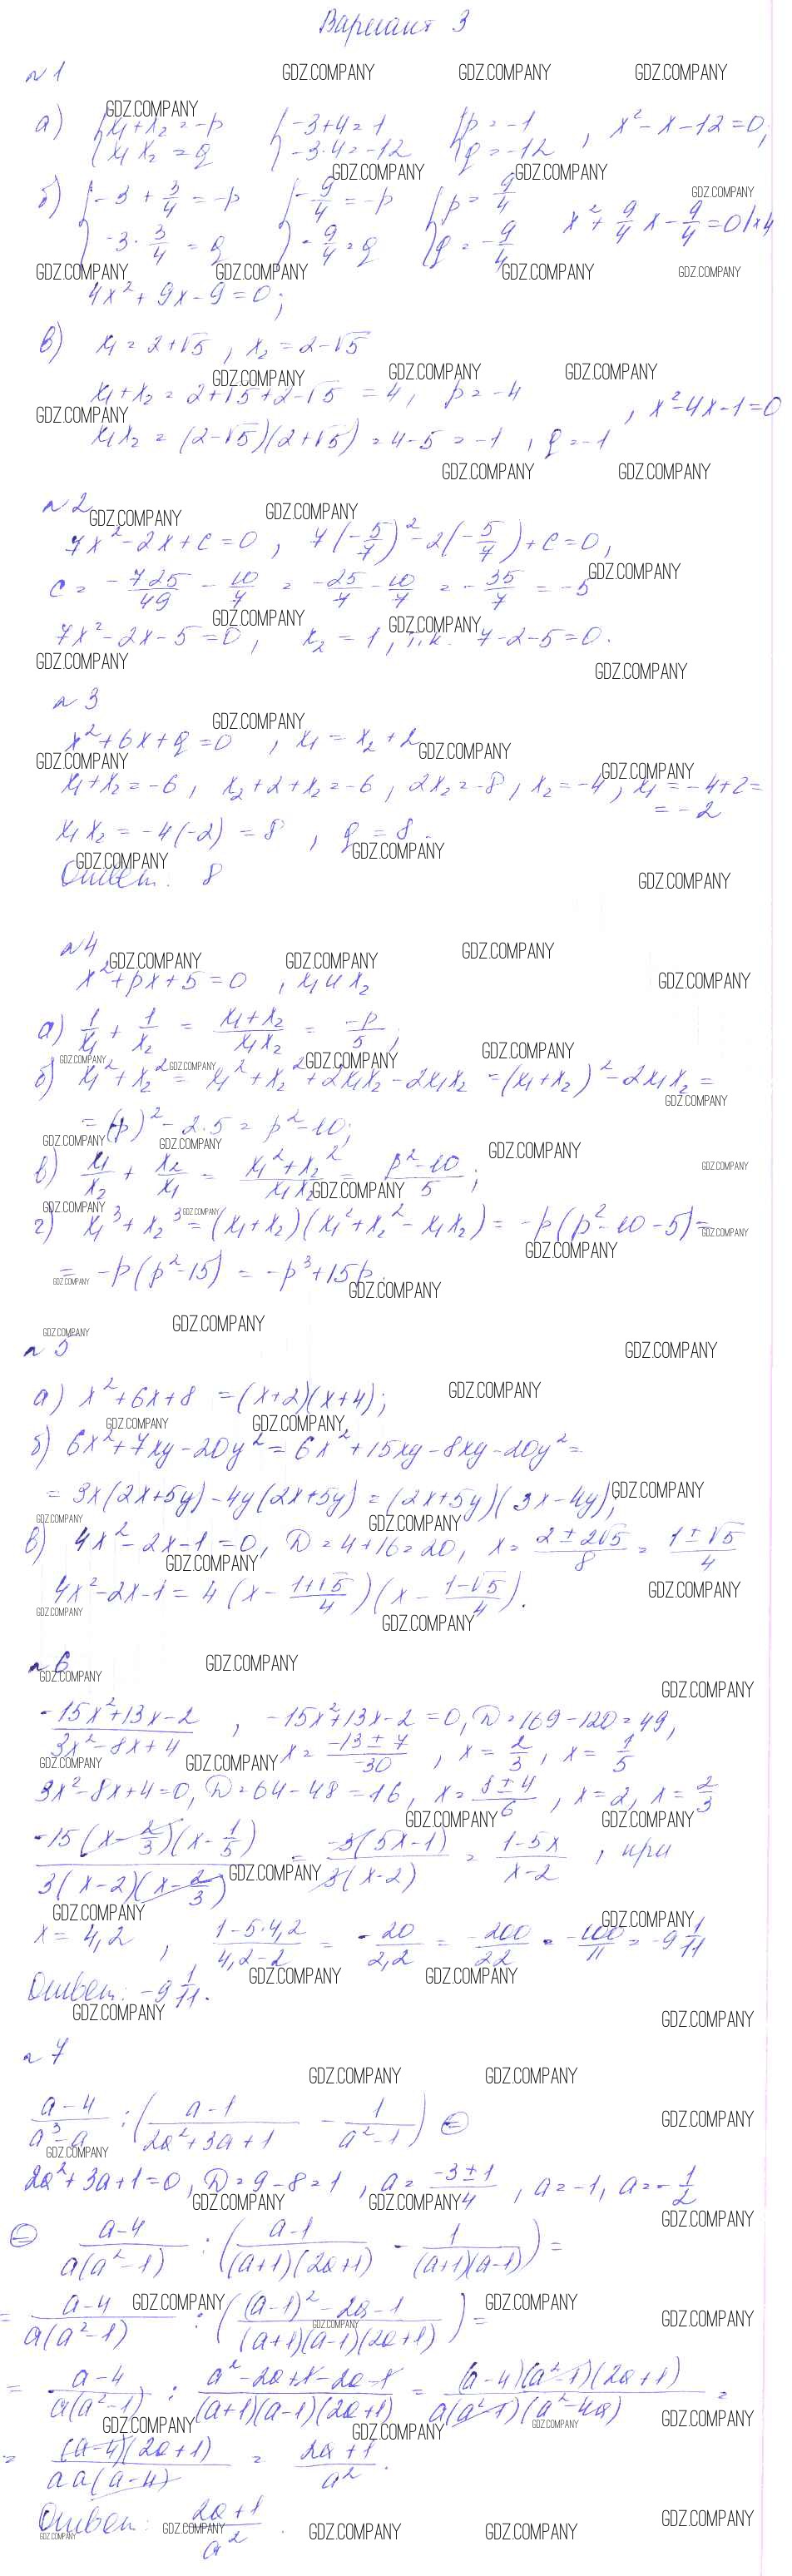 Вариант 3
№1
а) { x₁+x₂ = -p { -3+4=1 { p = -1 , x² - x - 12 = 0;
{ x₁x₂ = q { -3·4 = -12 { q = -12
б) { -3 + 3/4 = -p { -9/4 = -p { p = 9/4 x² + 9/4 x - 9/4 = 0 | ×4
{ -3 · 3/4 = q { -9/4 = q { q = -9/4
4x² + 9x - 9 = 0;
в) x₁ = 2+√5 , x₂ = 2-√5
x₁+x₂ = 2+√5+2-√5 = 4, p = -4
, x²-4x-1=0
x₁x₂ = (2-√5)(2+√5) = 4-5 = -1 , q = -1
№2
7x²-2x+c=0 , 7(-5/7)² - 2(-5/7) + c = 0,
c = - 7·25/49 - 10/7 = -25/7 - 10/7 = - 35/7 = -5
7x²-2x-5=0 , x₂ = 1, т.к. 7-2-5=0.
№3
x²+6x+q=0 , x₁ = x₂+2
x₁+x₂=-6, x₂+2+x₂=-6, 2x₂=-8, x₂=-4, x₁=-4+2=
= -2
x₁x₂ = -4(-2) = 8 , q = 8.
Ответ: 8
№4
x²+px+5=0 , x₁ и x₂
а) 1/x₁ + 1/x₂ = (x₁+x₂)/(x₁x₂) = -p/5;
б) x₁²+x₂² = x₁²+x₂²+2x₁x₂-2x₁x₂ = (x₁+x₂)²-2x₁x₂ =
= (-p)²-2·5 = p²-10;
в) x₁/x₂ + x₂/x₁ = (x₁²+x₂²)/(x₁x₂) = (p²-10)/5;
г) x₁³+x₂³ = (x₁+x₂)(x₁²+x₂²-x₁x₂) = -p(p²-10-5) =
= -p(p²-15) = -p³+15p.
№5
а) x²+6x+8 = (x+2)(x+4);
б) 6x²+7xy-20y² = 6x²+15xy-8xy-20y² =
= 3x(2x+5y)-4y(2x+5y) = (2x+5y)(3x-4y);
в) 4x²-2x-1=0, D=4+16=20, x = (2±2√5)/8 = (1±√5)/4
4x²-2x-1 = 4(x - (1+√5)/4)(x - (1-√5)/4).
№6
(-15x²+13x-2)/(3x²-8x+4) , -15x²+13x-2=0, D=169-120=49,
x = (-13±7)/(-30) , x = 2/3, x = 1/5
3x²-8x+4=0, D=64-48=16, x = (8±4)/6 , x=2, x=2/3
-15(x-2/3)(x-1/5)/(3(x-2)(x-2/3)) = -3(5x-1)/(3(x-2)) = (1-5x)/(x-2) , при
x=4,2 , (1-5·4,2)/(4,2-2) = -20/2,2 = -200/22 = -100/11 = -9 1/11
Ответ: -9 1/11.
№7
(a-4)/(a³-a) : ((a-1)/(2a²+3a+1) - 1/(a²-1)) ⊜
2a²+3a+1=0, D=9-8=1 , a = (-3±1)/4 , a=-1, a=-1/2
⊜ (a-4)/(a(a²-1)) : ((a-1)/((a+1)(2a+1)) - 1/((a+1)(a-1))) =
= (a-4)/(a(a²-1)) : (((a-1)²-2a-1)/((a+1)(a-1)(2a+1))) =
= (a-4)/(a(a²-1)) : (a²-2a+1-2a-1)/((a+1)(a-1)(2a+1)) = (a-4)(a²-1)(2a+1)/(a(a²-1)(a²-4a)) =
= (a-4)(2a+1)/(aa(a-4)) = (2a+1)/a².
Ответ: (2a+1)/a².
GDZ.COMPANY